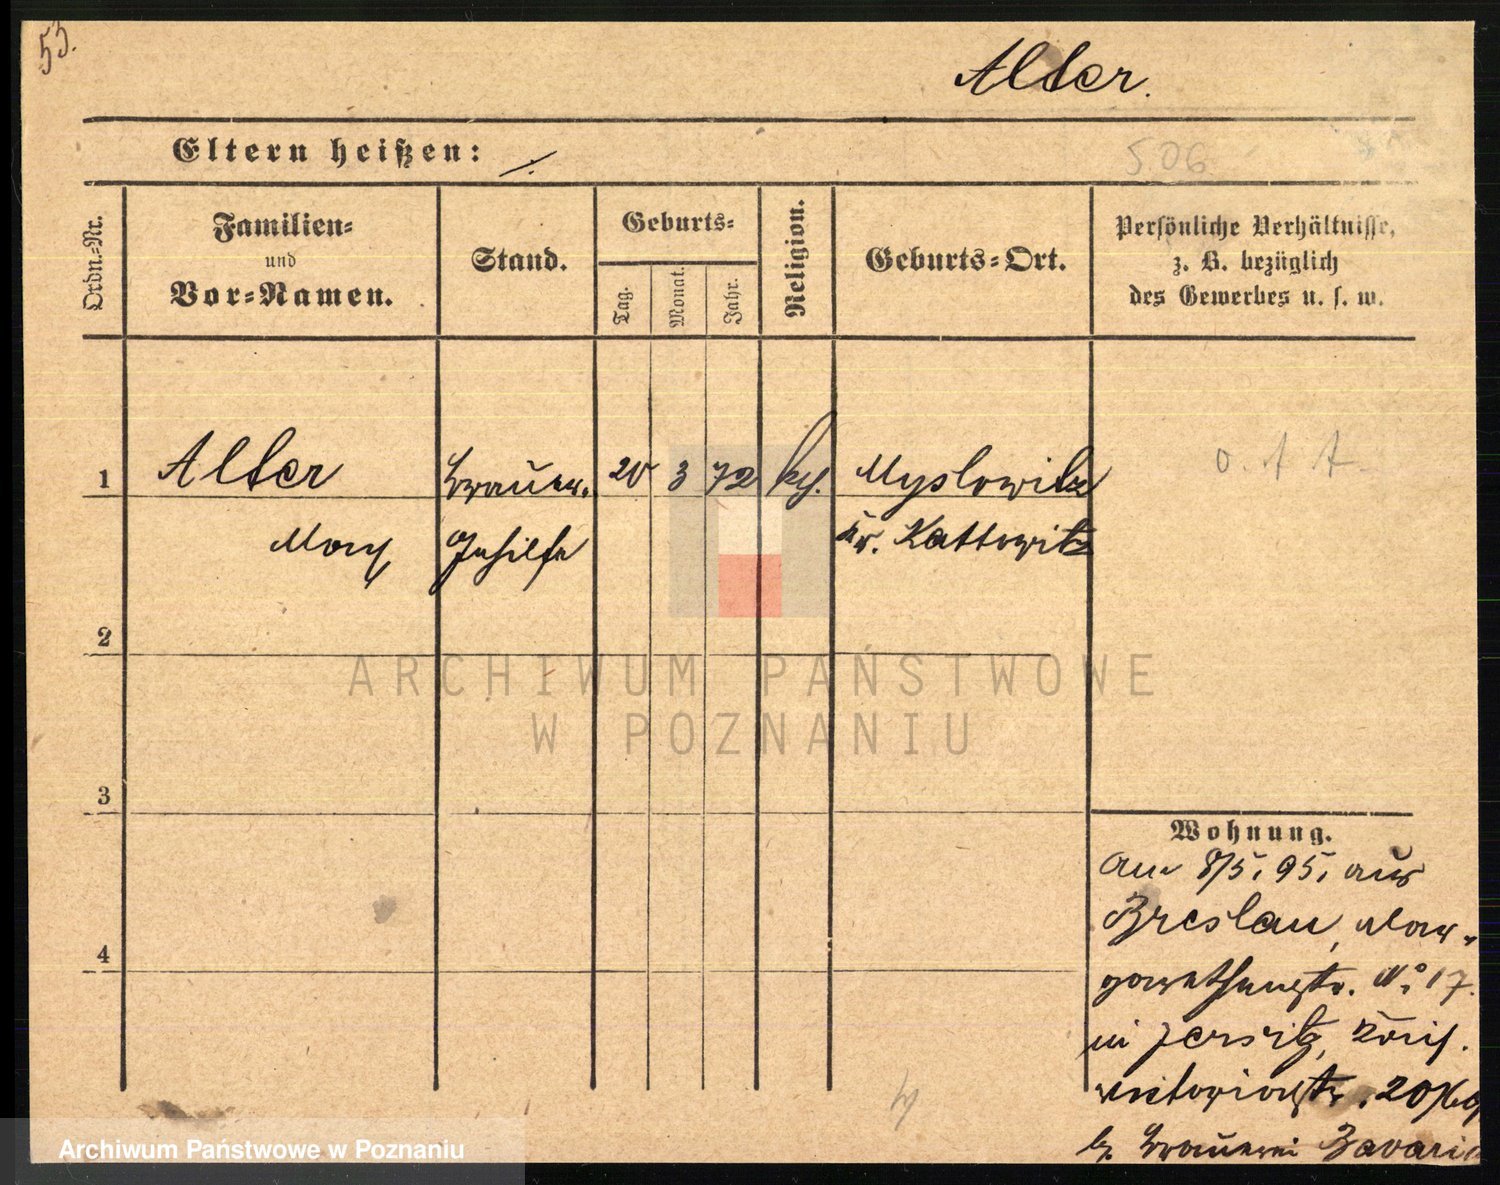 53.
Alter.
Eltern heißen: ./.
506
Ordn.-Nr.
Familien-
und
Vor-Namen.
Stand.
Geburts-
Tag.
Monat.
Jahr.
Religion.
Geburts-Ort.
Persönliche Verhältnisse,
z. B. bezüglich
des Gewerbes u. s. w.
1 Alter Brauer- 20 3 72 kh. Myslowitz
Max Gehilfe Kr. Kattowitz
2
3
4
ARCHIWUM PAŃSTWOWE
W POZNANIU
Wohnung.
Am 8/5. 95. aus
Breslau, Mar-
garethenstr. No 17.
in Jersitz,
Victoriastr. 20
b. Brauerei Bavaria
Archiwum Państwowe w Poznaniu